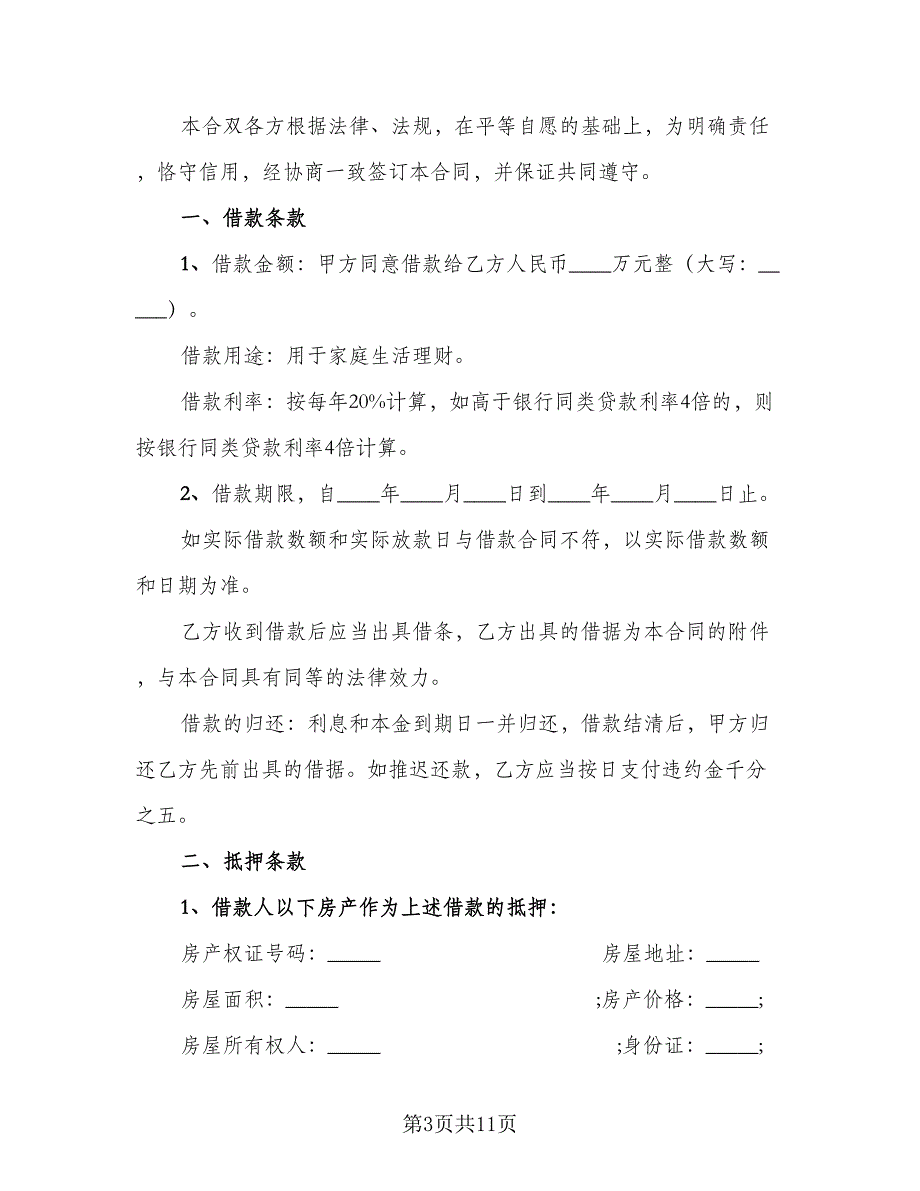 本合双各方根据法律、法规，在平等自愿的基础上，为明确责任
，恪守信用，经协商一致签订本合同，并保证共同遵守。
一、借款条款
1、借款金额：甲方同意借款给乙方人民币____万元整（大写：__
___）。
借款用途：用于家庭生活理财。
借款利率：按每年20%计算，如高于银行同类贷款利率4倍的，则
按银行同类贷款利率4倍计算。
2、借款期限，自____年____月____日到____年____月____日止。
如实际借款数额和实际放款日与借款合同不符，以实际借款数额
和日期为准。
乙方收到借款后应当出具借条，乙方出具的借据为本合同的附件
，与本合同具有同等的法律效力。
借款的归还：利息和本金到期日一并归还，借款结清后，甲方归
还乙方先前出具的借据。如推迟还款，乙方应当按日支付违约金千分
之五。
二、抵押条款
1、借款人以下房产作为上述借款的抵押：
房产权证号码：_____ 房屋地址：_____
房屋面积：_____ ;房产价格：_____;
房屋所有权人：_____ ;身份证：_____;
第3页共11页